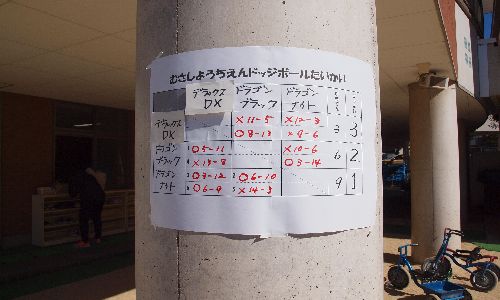 むさしようちえんドッジボールたいかい
デラックスDX ドラゴンブラック ドラゴンナイト
デラックスDX ×11-5 ×12-3 3 3
○8-13 ×9-6
ドラゴンブラック ○5-11 ×10-6 6 2
×13-8 ○3-14
ドラゴンナイト ○3-12 ○6-10 9 1
○6-9 ×14-3